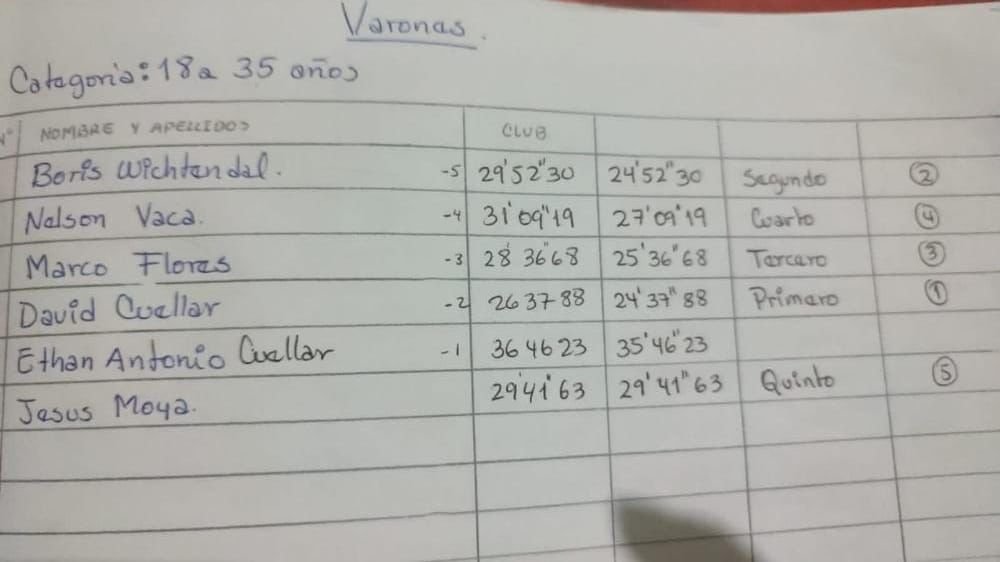 Varonas.
Categoria: 18a 35 años
N° NOMBRE Y APELLIDOS CLUB
Boris Wichtendal. -5 29'52"30 24'52"30 Segundo ②
Nelson Vaca. -4 31'09"19 27'09"19 Cuarto ④
Marco Flores -3 28'36"68 25'36"68 Tercero ③
David Cuellar -2 263788 24'37"88 Primero ①
Ethan Antonio Cuellar -1 364623 35'46"23
Jesus Moya. 29'41"63 29'41"63 Quinto ⑤